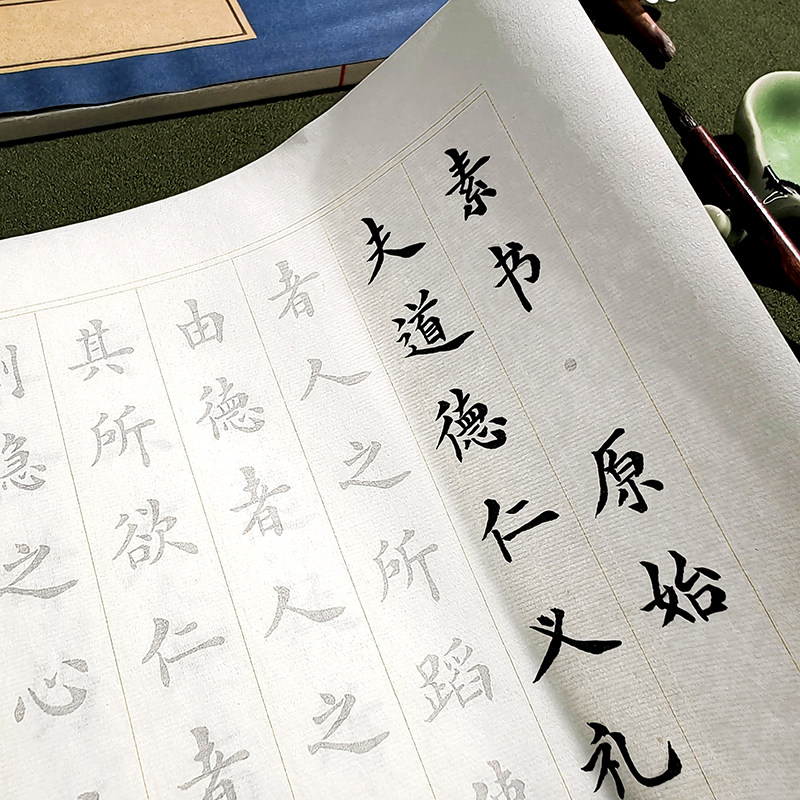 素书·原始
夫道德仁义礼
者人之所蹈使
由德者人之
其所欲仁者
之心